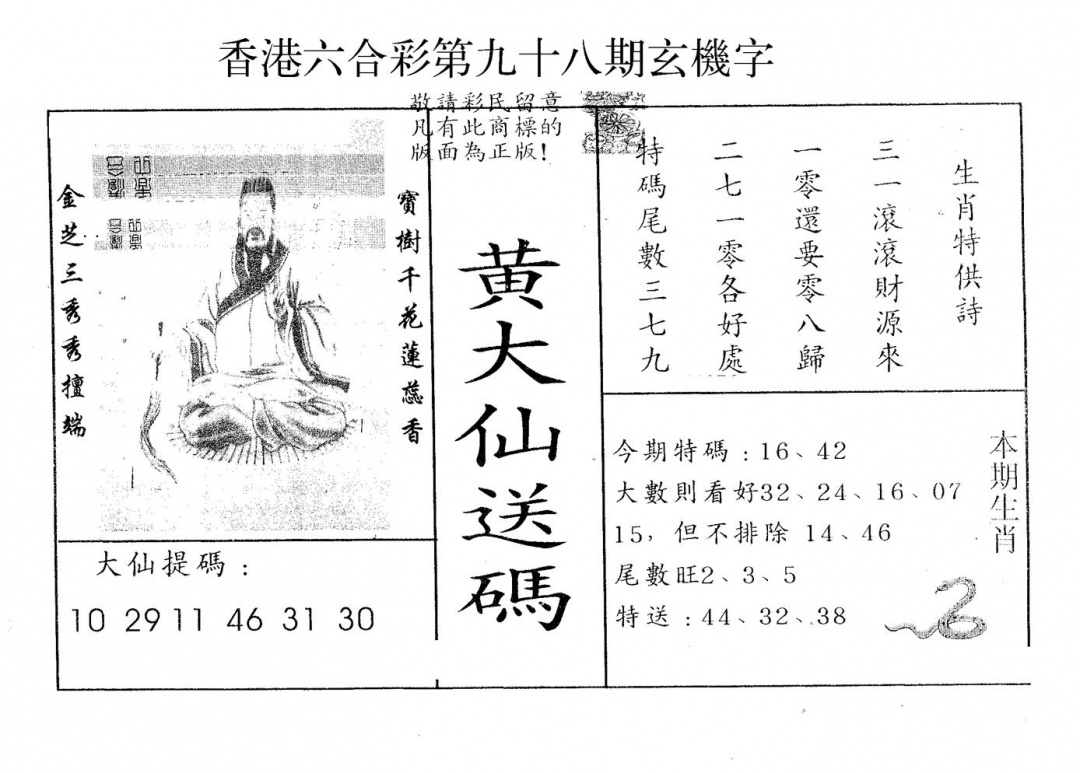 香港六合彩第九十八期玄機字
敬請彩民留意
凡有此商標的
版面為正版！
寶樹千花蓮蕊香
金芝三秀秀擅端
大仙提碼：
10 29 11 46 31 30
黃大仙送碼
生肖特供詩
三一滾滾財源來
一零還要零八歸
二七一零各好處
特碼尾數三七九
今期特碼：16、42
大數則看好32、24、16、07
15，但不排除 14、46
尾數旺2、3、5
特送：44、32、38
本期生肖